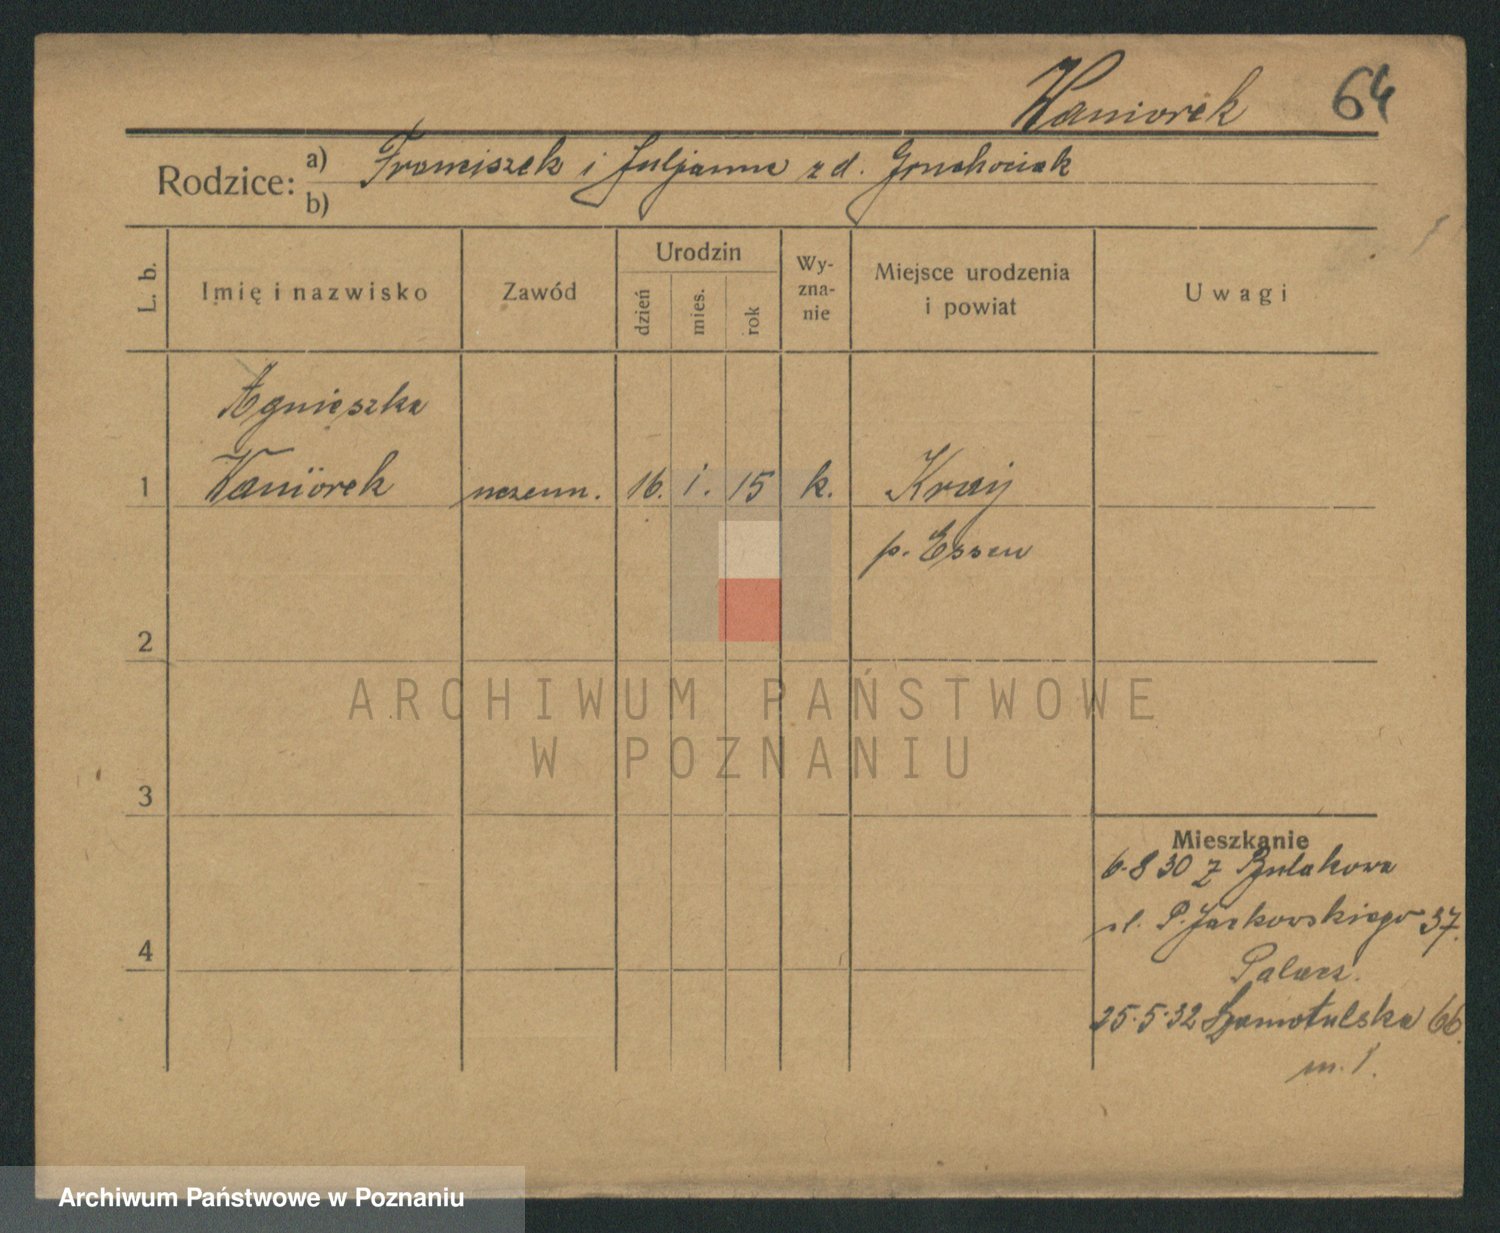 Waniorek 64
Rodzice: a) Franciszek i Juljanna z d. Gruchociak
b)
L. b.
Imię i nazwisko
Zawód
Urodzin
dzień
mies.
rok
Wy-
zna-
nie
Miejsce urodzenia
i powiat
Uwagi
Agnieszka
1 Waniorek uczenn. 16. 1. 15 k. Kray
p. Essen
2
3
4
Mieszkanie
6.8 30 z
ul. P. Jackowskiego 37.
Palacz.
25.5.32 Szamotulska 66.
m. 1.
ARCHIWUM PAŃSTWOWE
W POZNANIU
Archiwum Państwowe w Poznaniu